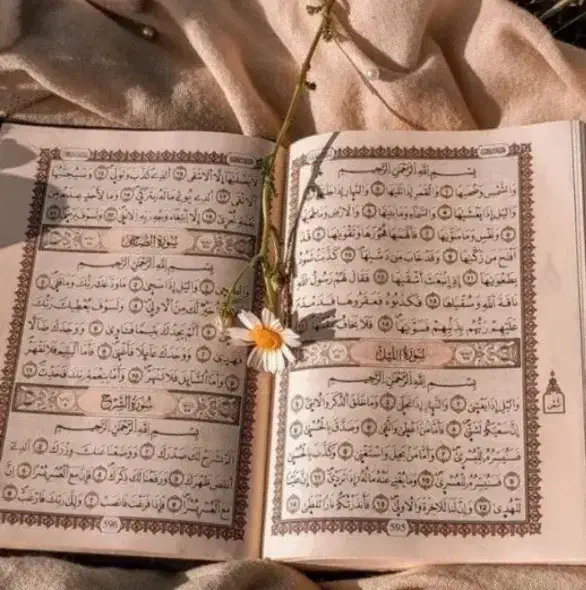 بِسْمِ اللَّهِ الرَّحْمَنِ الرَّحِيمِ
وَالشَّمْسِ وَضُحَىٰهَا ١ وَالْقَمَرِ إِذَا تَلَىٰهَا ٢ وَالنَّهَارِ إِذَا
وَاللَّيْلِ إِذَا يَغْشَىٰهَا ٤ وَالسَّمَاءِ وَمَا بَنَىٰهَا ٥ وَالْأَرْضِ وَمَا طَحَىٰهَا
وَنَفْسٍ وَمَا سَوَّىٰهَا ٧ فَأَلْهَمَهَا فُجُورَهَا وَتَقْوَىٰهَا ٨ قَدْ
أَفْلَحَ مَن زَكَّىٰهَا ٩ وَقَدْ خَابَ مَن دَسَّىٰهَا ١٠ كَذَّبَتْ ثَمُودُ
بِطَغْوَىٰهَا ١١ إِذِ انبَعَثَ أَشْقَىٰهَا ١٢ فَقَالَ لَهُمْ رَسُولُ اللَّهِ
نَاقَةَ اللَّهِ وَسُقْيَىٰهَا ١٣ فَكَذَّبُوهُ فَعَقَرُوهَا فَدَمْدَمَ
عَلَيْهِمْ رَبُّهُم بِذَنبِهِمْ فَسَوَّىٰهَا ١٤ يَخَافُ
سُورَةُ اللَّيْلِ
بِسْمِ اللَّهِ الرَّحْمَنِ الرَّحِيمِ
وَاللَّيْلِ إِذَا يَغْشَىٰ ١ وَالنَّهَارِ إِذَا تَجَلَّىٰ ٢ وَمَا خَلَقَ الذَّكَرَ وَالْأُنثَىٰ ٣
إِنَّ سَعْيَكُمْ لَشَتَّىٰ ٤ فَأَمَّا مَنْ أَعْطَىٰ وَاتَّقَىٰ ٥ وَصَدَّقَ بِالْحُسْنَىٰ ٦
فَسَنُيَسِّرُهُ لِلْيُسْرَىٰ ٧ وَأَمَّا مَن بَخِلَ وَاسْتَغْنَىٰ ٨ وَكَذَّبَ بِالْحُسْنَىٰ
٩ فَسَنُيَسِّرُهُ لِلْعُسْرَىٰ ١٠ وَمَا يُغْنِي عَنْهُ مَالُهُ إِذَا تَرَدَّىٰ ١١ إِنَّ عَلَيْنَا
لَلْهُدَىٰ ١٢ وَإِنَّ لَنَا لَلْآخِرَةَ وَالْأُولَىٰ ١٣ فَأَنذَرْتُكُمْ نَارًا تَلَظَّىٰ ١٤
595
لَا يَصْلَىٰهَا إِلَّا الْأَشْقَى ١٥ الَّذِي كَذَّبَ وَتَوَلَّىٰ ١٦ وَسَيُجَنَّبُهَا
الْأَتْقَى ١٧ الَّذِي يُؤْتِي مَالَهُ يَتَزَكَّىٰ ١٨ وَمَا لِأَحَدٍ عِندَهُ مِن
نِّعْمَةٍ تُجْزَىٰ ١٩ إِلَّا ابْتِغَاءَ وَجْهِ رَبِّهِ الْأَعْلَىٰ ٢٠ وَلَسَوْفَ يَرْضَىٰ
سُورَةُ الضُّحَىٰ
بِسْمِ اللَّهِ الرَّحْمَنِ الرَّحِيمِ
وَاللَّيْلِ إِذَا سَجَىٰ ٢ مَا وَدَّعَكَ رَبُّكَ وَمَا قَلَىٰ ٣
لَّكَ مِنَ الْأُولَىٰ ٤ وَلَسَوْفَ يُعْطِيكَ رَبُّكَ
أَلَمْ يَجِدْكَ يَتِيمًا فَآوَىٰ ٦ وَوَجَدَكَ ضَالًّا
فَهَدَىٰ ٧ وَوَجَدَكَ عَائِلًا فَأَغْنَىٰ ٨ فَأَمَّا الْيَتِيمَ فَلَا تَقْهَرْ
٩ وَأَمَّا السَّائِلَ فَلَا تَنْهَرْ ١٠ وَأَمَّا بِنِعْمَةِ رَبِّكَ فَحَدِّثْ
سُورَةُ الشَّرْحِ
بِسْمِ اللَّهِ الرَّحْمَنِ الرَّحِيمِ
أَلَمْ نَشْرَحْ لَكَ صَدْرَكَ ١ وَوَضَعْنَا عَنكَ وِزْرَكَ ٢ الَّذِي
أَنقَضَ ظَهْرَكَ ٣ وَرَفَعْنَا لَكَ ذِكْرَكَ ٤ فَإِنَّ مَعَ الْعُسْرِ يُسْرًا ٥ إِنَّ
مَعَ الْعُسْرِ يُسْرًا ٦ فَإِذَا فَرَغْتَ فَانصَبْ ٧ وَإِلَىٰ رَبِّكَ فَارْغَب ٨
596